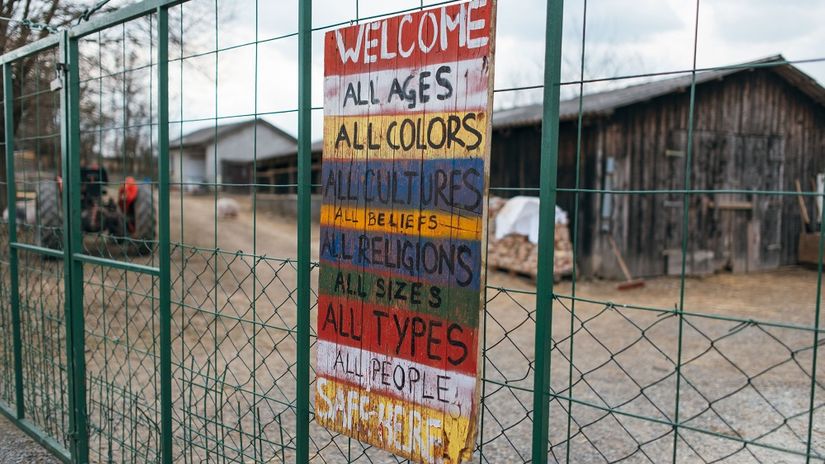 WELCOME
ALL AGES
ALL COLORS
ALL CULTURES
ALL BELIEFS
ALL RELIGIONS
ALL SIZES
ALL TYPES
ALL PEOPLE,
SAFE HERE